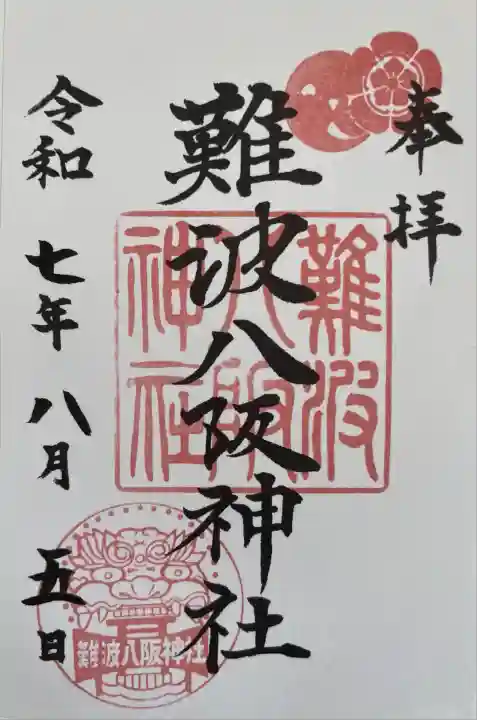 奉拝
難波八阪神社
難波
八阪
神社
令和 七年 八月 五日
難波八阪神社